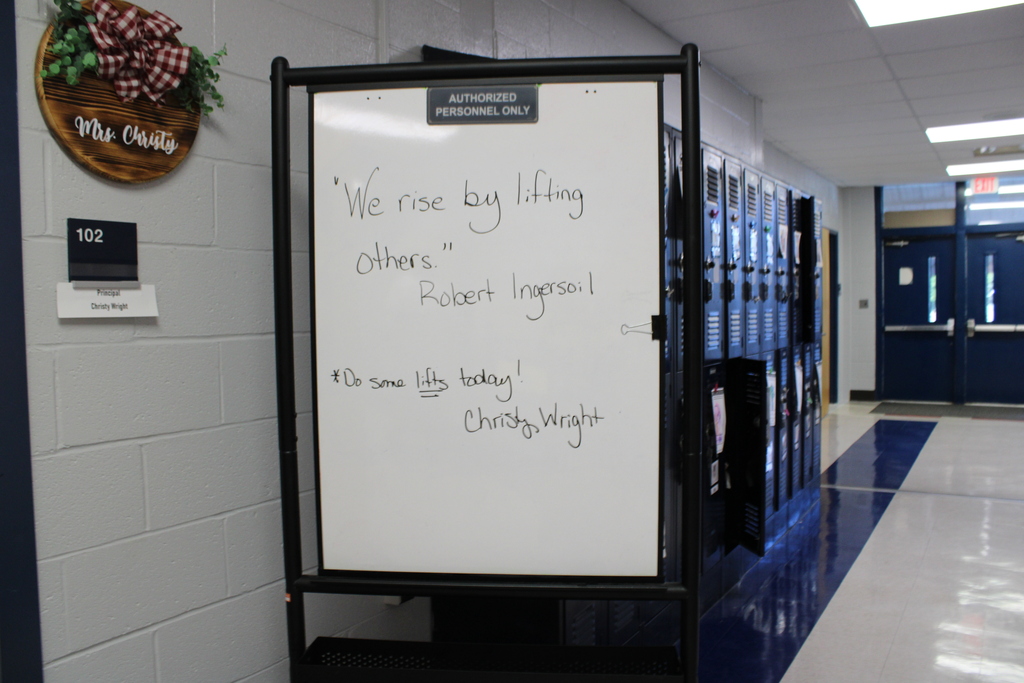 Mrs. Christy
102
Principal
Christy Wright
AUTHORIZED
PERSONNEL ONLY
"We rise by lifting
others."
Robert Ingersoil
*Do some lifts today!
Christy Wright
EXIT